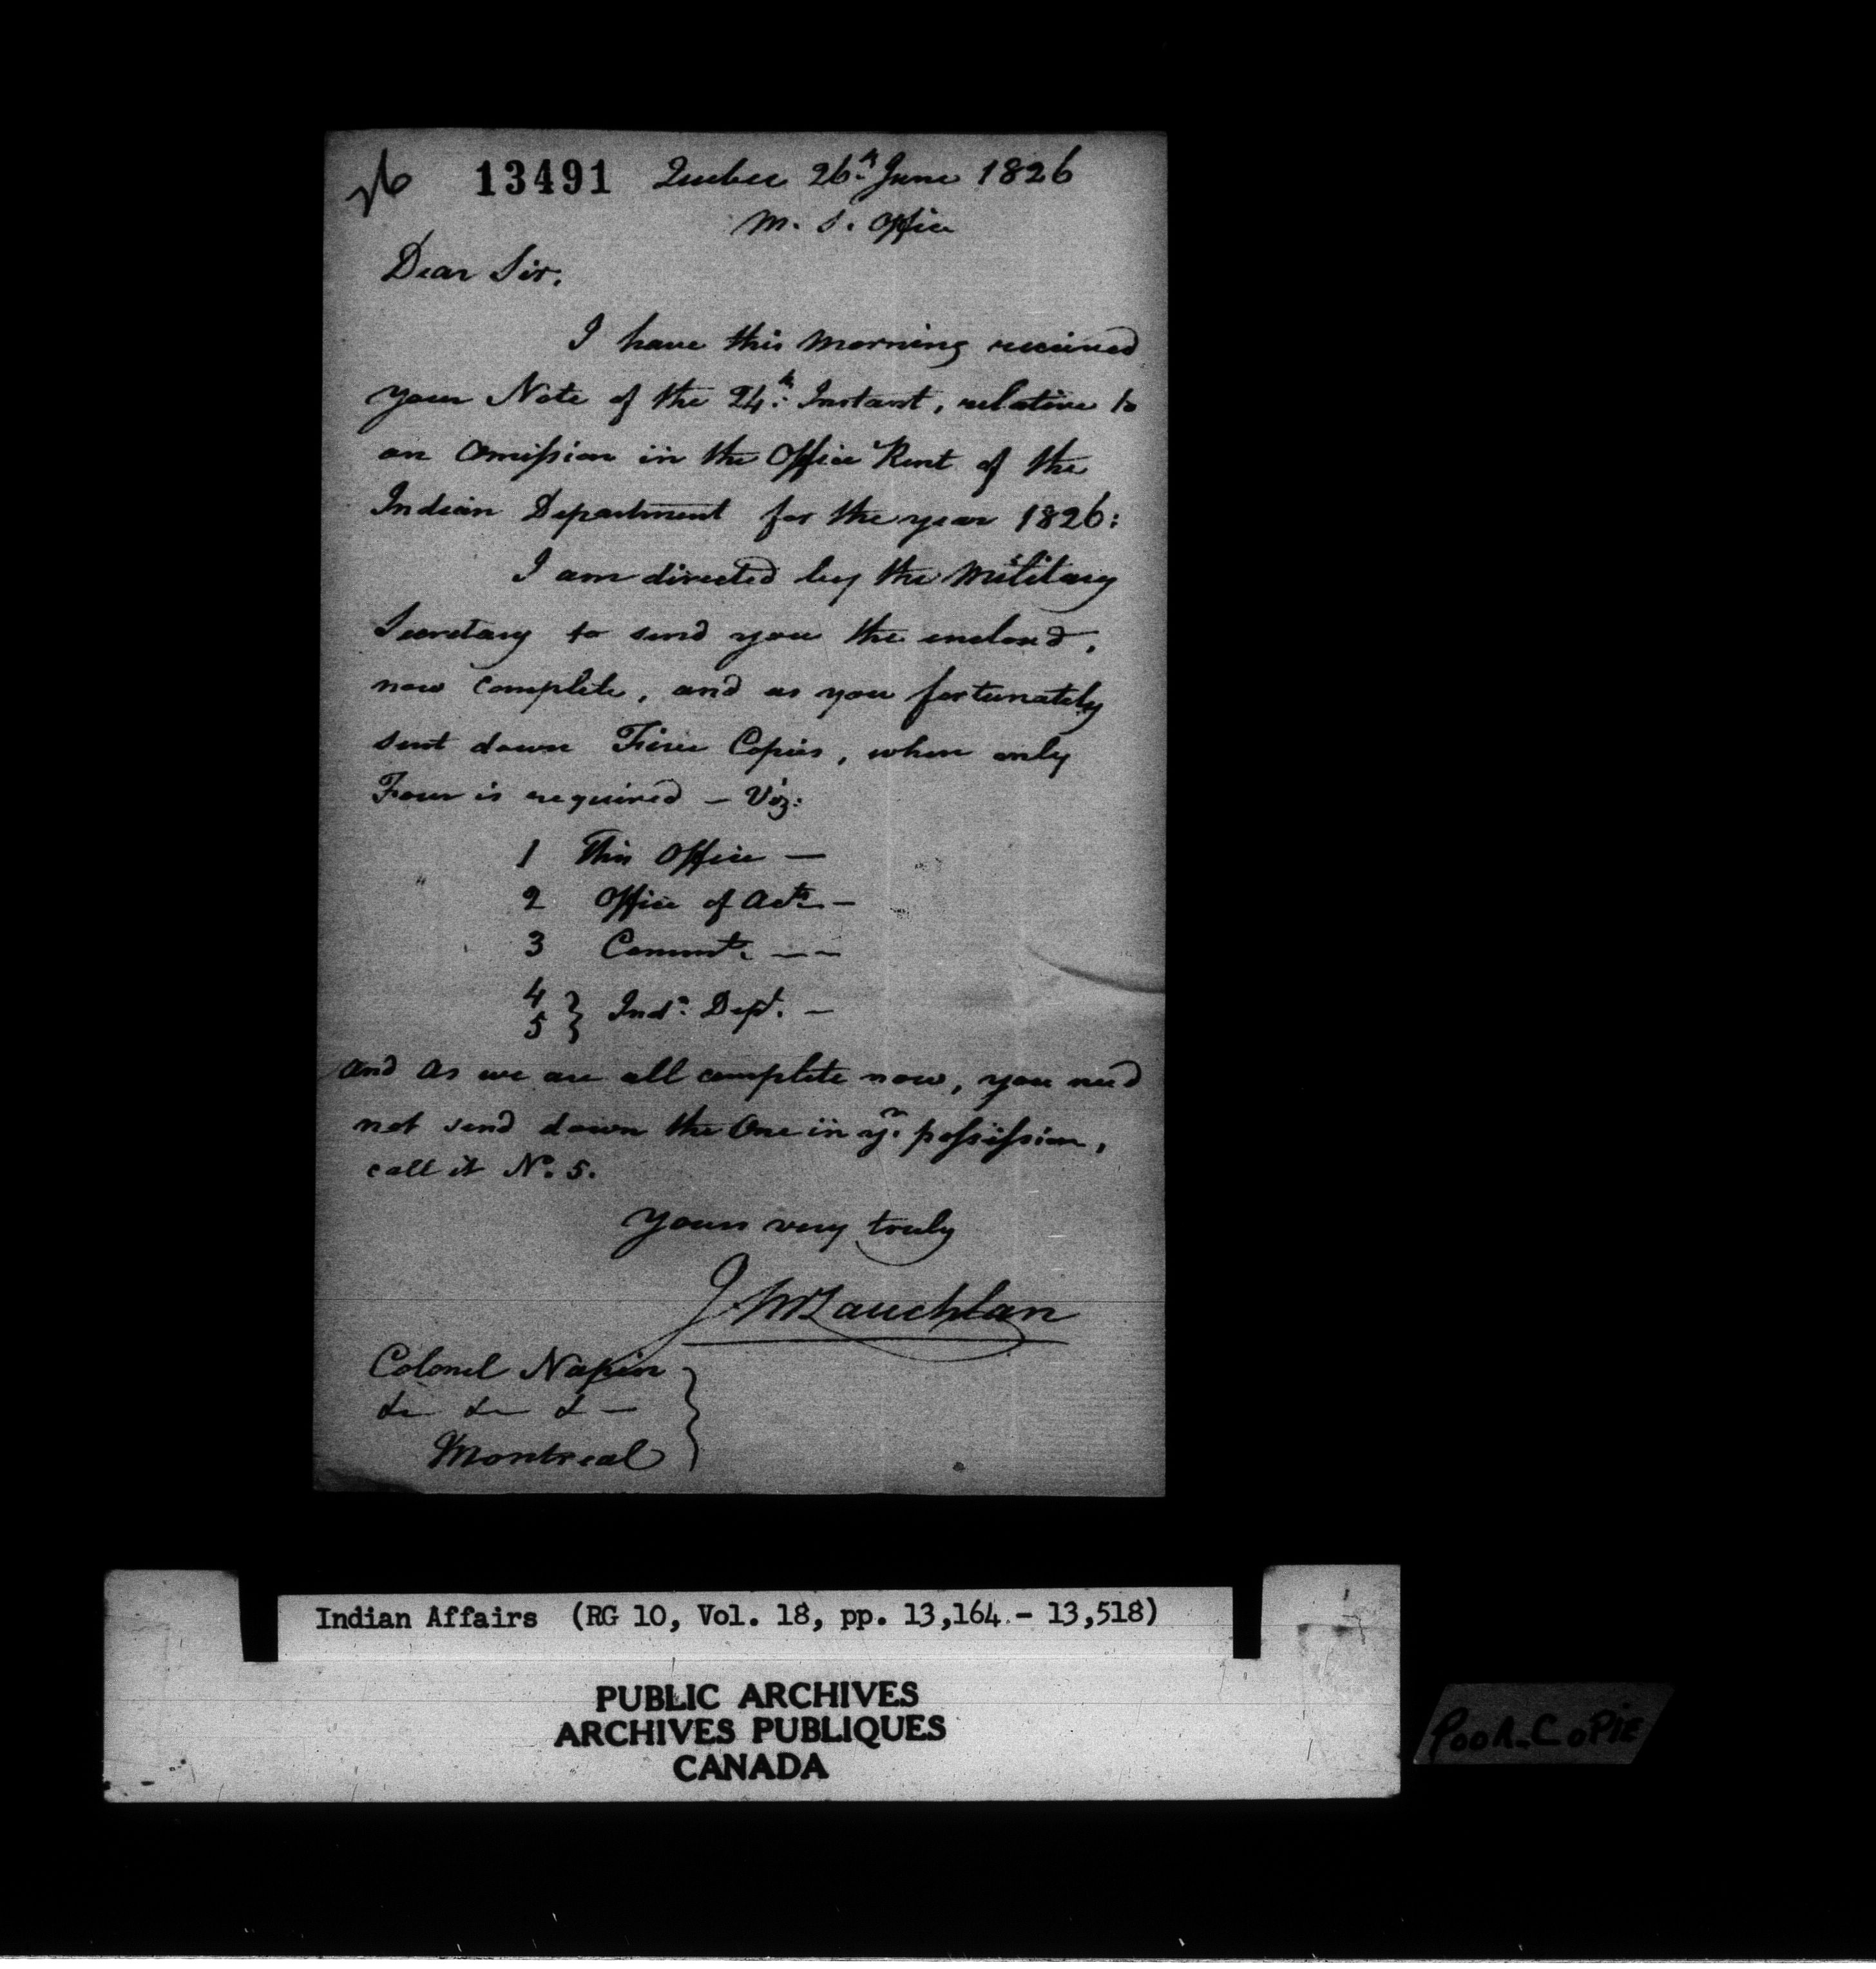 26 13491 Quebec 26th June 1826
M. S. Office
Dear Sir,
I have this Morning received
your Note of the 24th Instant, relative to
an Omission in the Office Rent of the
Indian Department for the year 1826:
I am directed by the Military
Secretary to send you the enclosed,
now complete, and as you fortunately
sent down Five Copies, when only
Four is required – Viz:
1 This Office —
2 Office of Accts —
3 Commt. — —
4
5 } Indn. Dept. —
and as we are all complete now, you need
not send down the One in yr. possission,
call it No. 5.
Yours very truly
J. McLauchlan
Colonel Napier
&c &c & —
Montreal
Indian Affairs (RG 10, Vol. 18, pp. 13,164 - 13,518)
PUBLIC ARCHIVES
ARCHIVES PUBLIQUES
CANADA
POOR COPIE